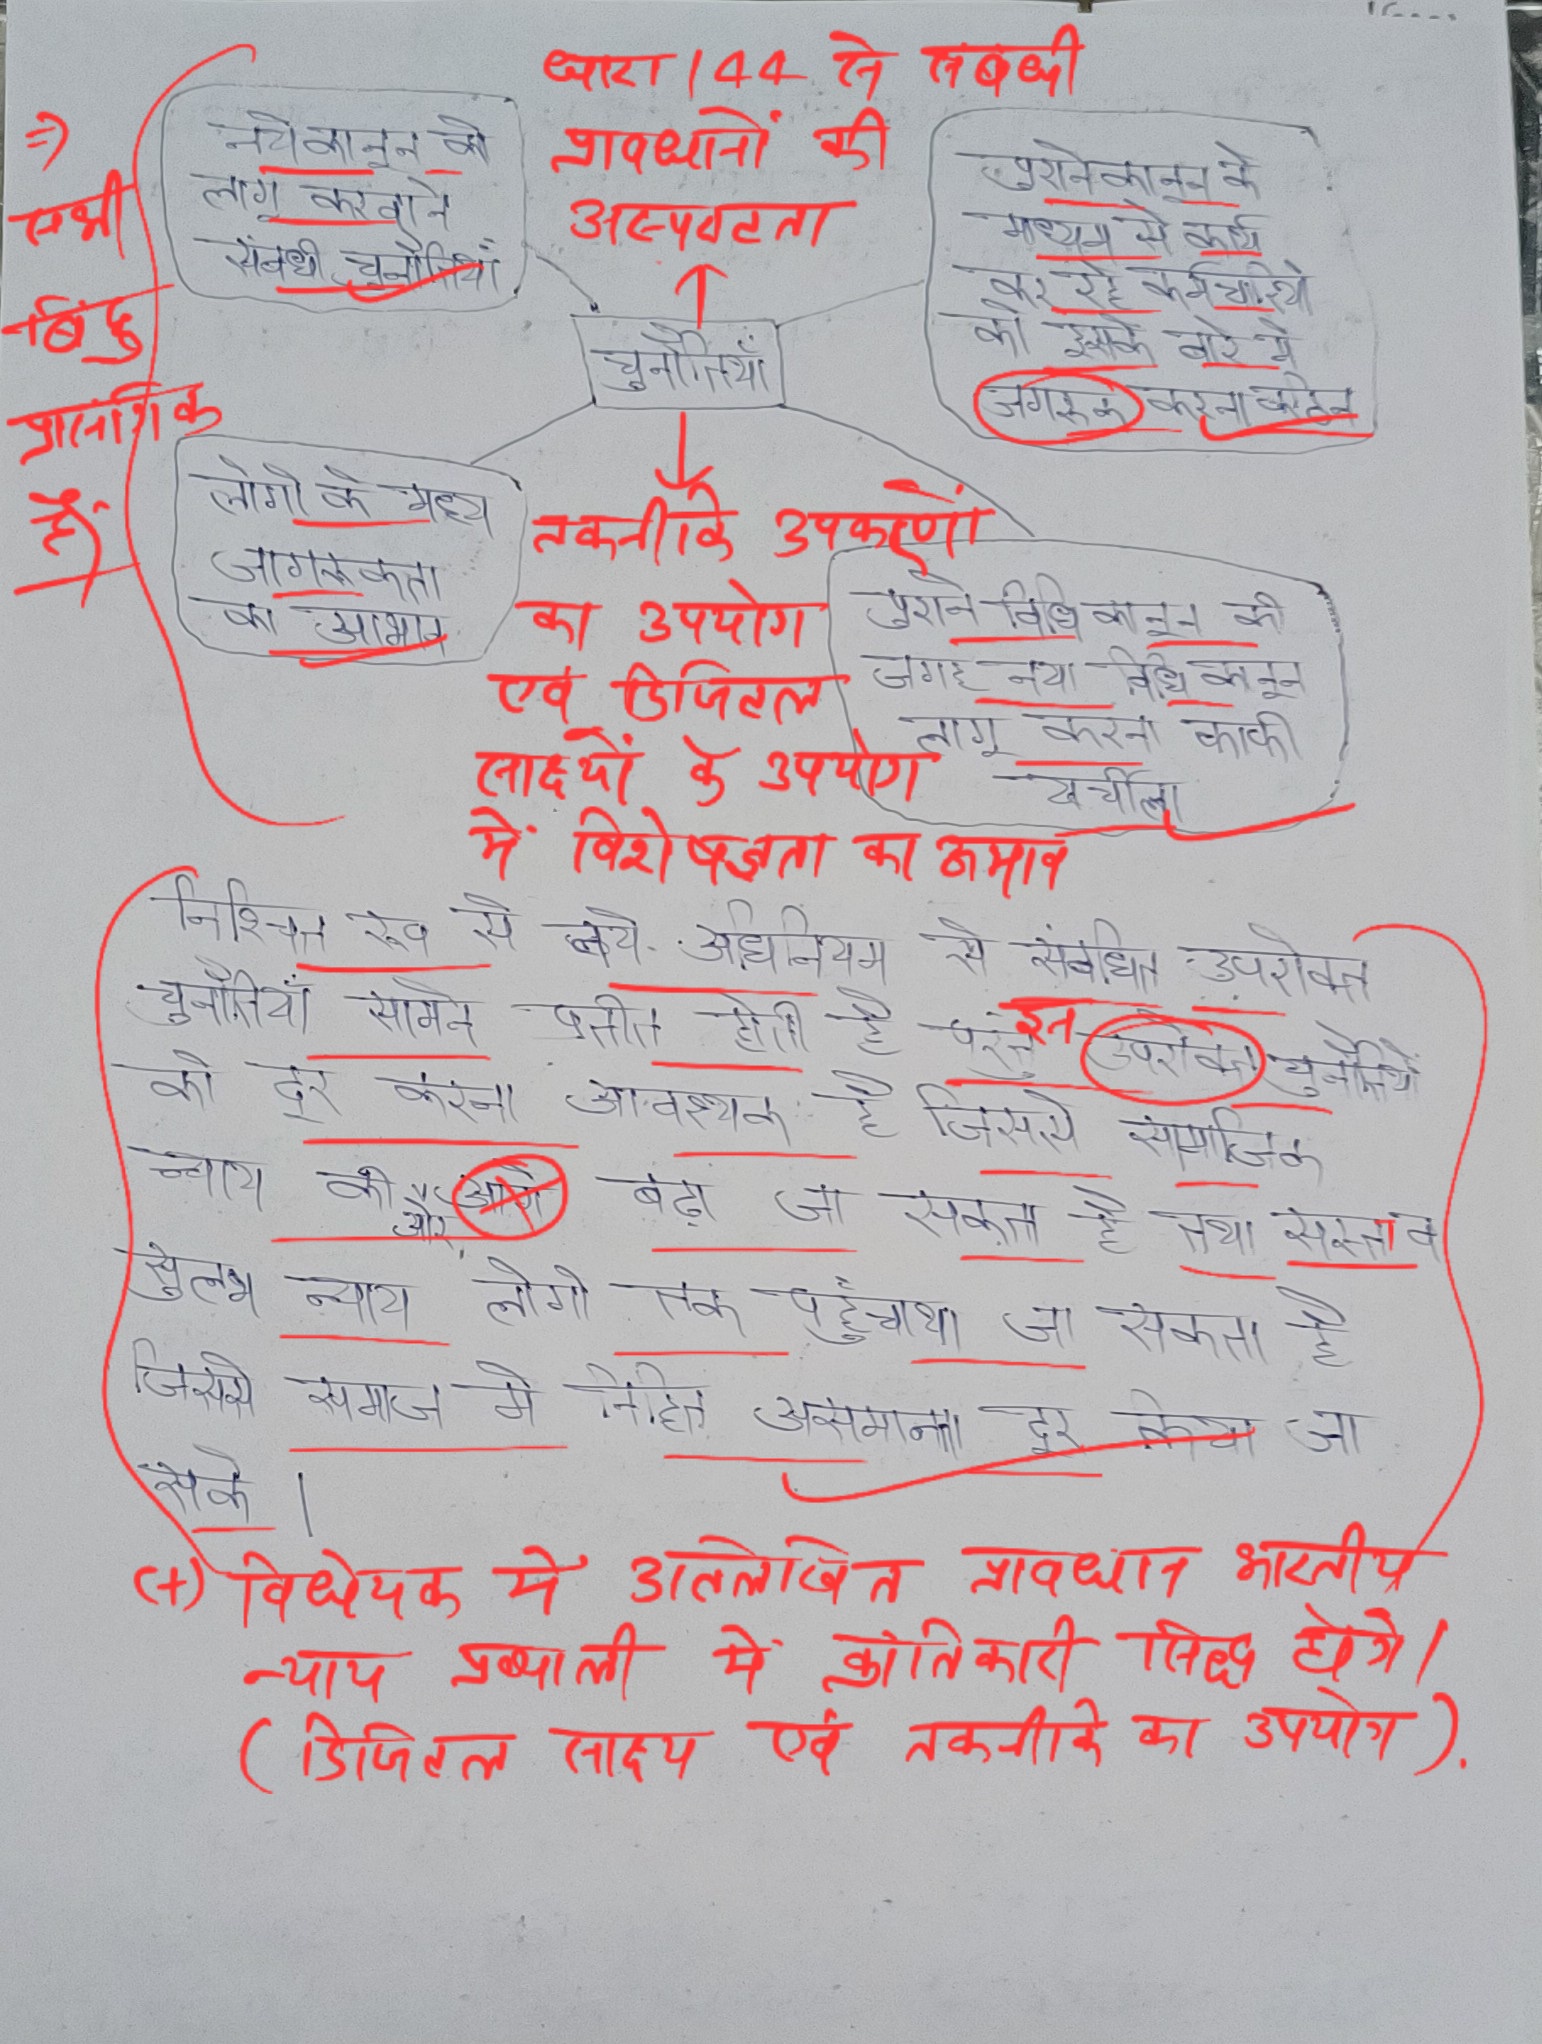 धारा 144 से संबंधी
प्रावधानों की
अस्पष्टता
⇒
सभी
बिंदु
प्रासंगिक
हैं
नये कानून को
लागू करवाने
संबंधी चुनौतियाँ
पुराने कानून के
माध्यम से कार्य
कर रहे कर्मचारियो
को इसके बारे मे
जगरूक करना कठिन
चुनौतियाँ
लोगो के मध्य
जागरूकता
का आभाव
तकनीकि उपकरणों
का उपयोग
एवं डिजिटल
साक्ष्यों के उपयोग
में विशेषज्ञता का अभाव
पुराने विधि कानून की
जगह नया विधि कानून
लागू करना काफी
खर्चीला
निश्चित रूप से नये अधिनियम से संबंधित उपरोक्त
चुनौतियाँ सामने प्रतीत होती है परंतु इन उपरोक्त चुनौतियों
को दूर करना आवश्यक है जिससे सामाजिक
न्याय की ओर आगे बढ़ा जा सकता है तथा सस्ता व
सुलभ न्याय लोगो तक पहुँचाया जा सकता है
जिससे समाज मे निहित असमानता दूर किया जा
सके।
(+) विधेयक में उल्लेखित प्रावधान भारतीय
न्याय प्रणाली में क्रांतिकारी सिद्ध होंगे।
(डिजिटल साक्ष्य एवं तकनीकि का उपयोग).